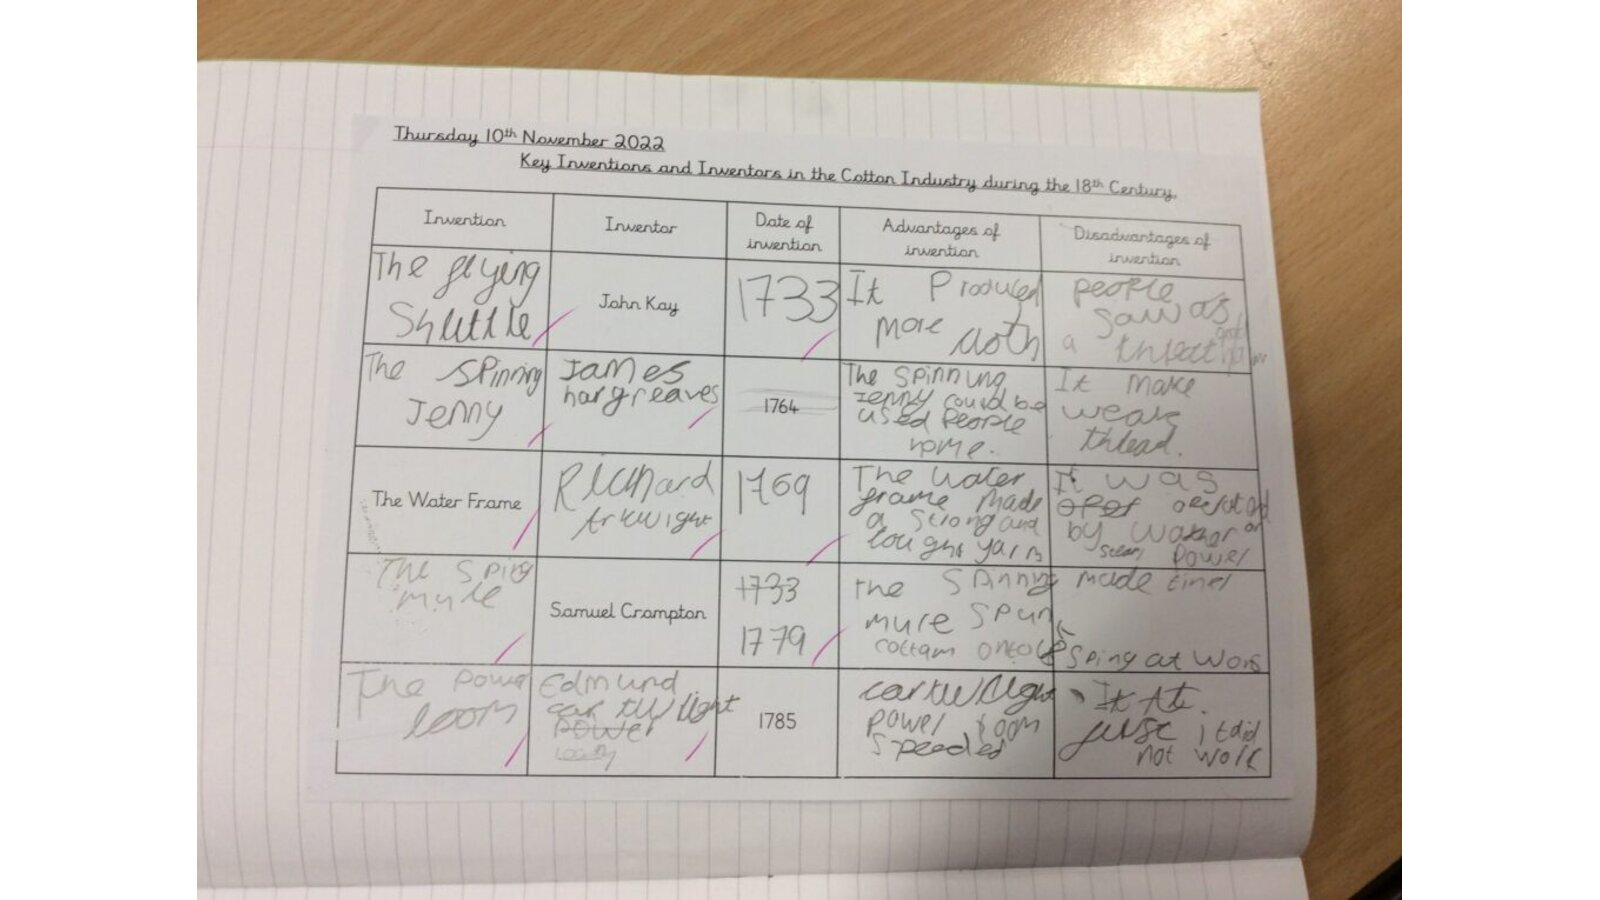 Thursday 10th November 2022
Key Inventions and Inventors in the Cotton Industry during the 18th Century.
Invention
Inventor
Date of
invention
Advantages of
invention
Disadvantages of
invention
The flying
Shuttle
John Kay
1733
It Produced
more cloth
people
saw as
a threat
The Spinning
Jenny
James
hargreaves
1764
The spinning
Jenny could be
used people
home.
It make
weak
thread.
The Water Frame
Richard
Arkwight
1769
The water
frame made
a strong and
yarn
It was
by
power
The Sping
mule
Samuel Crompton
1733
1779
The Spinning
mure spun
cottam
made finer
sping at
The Power
loom
Edmund
cartwlight
power
1785
cartwlight
power loom
speeded
It
it did
not work